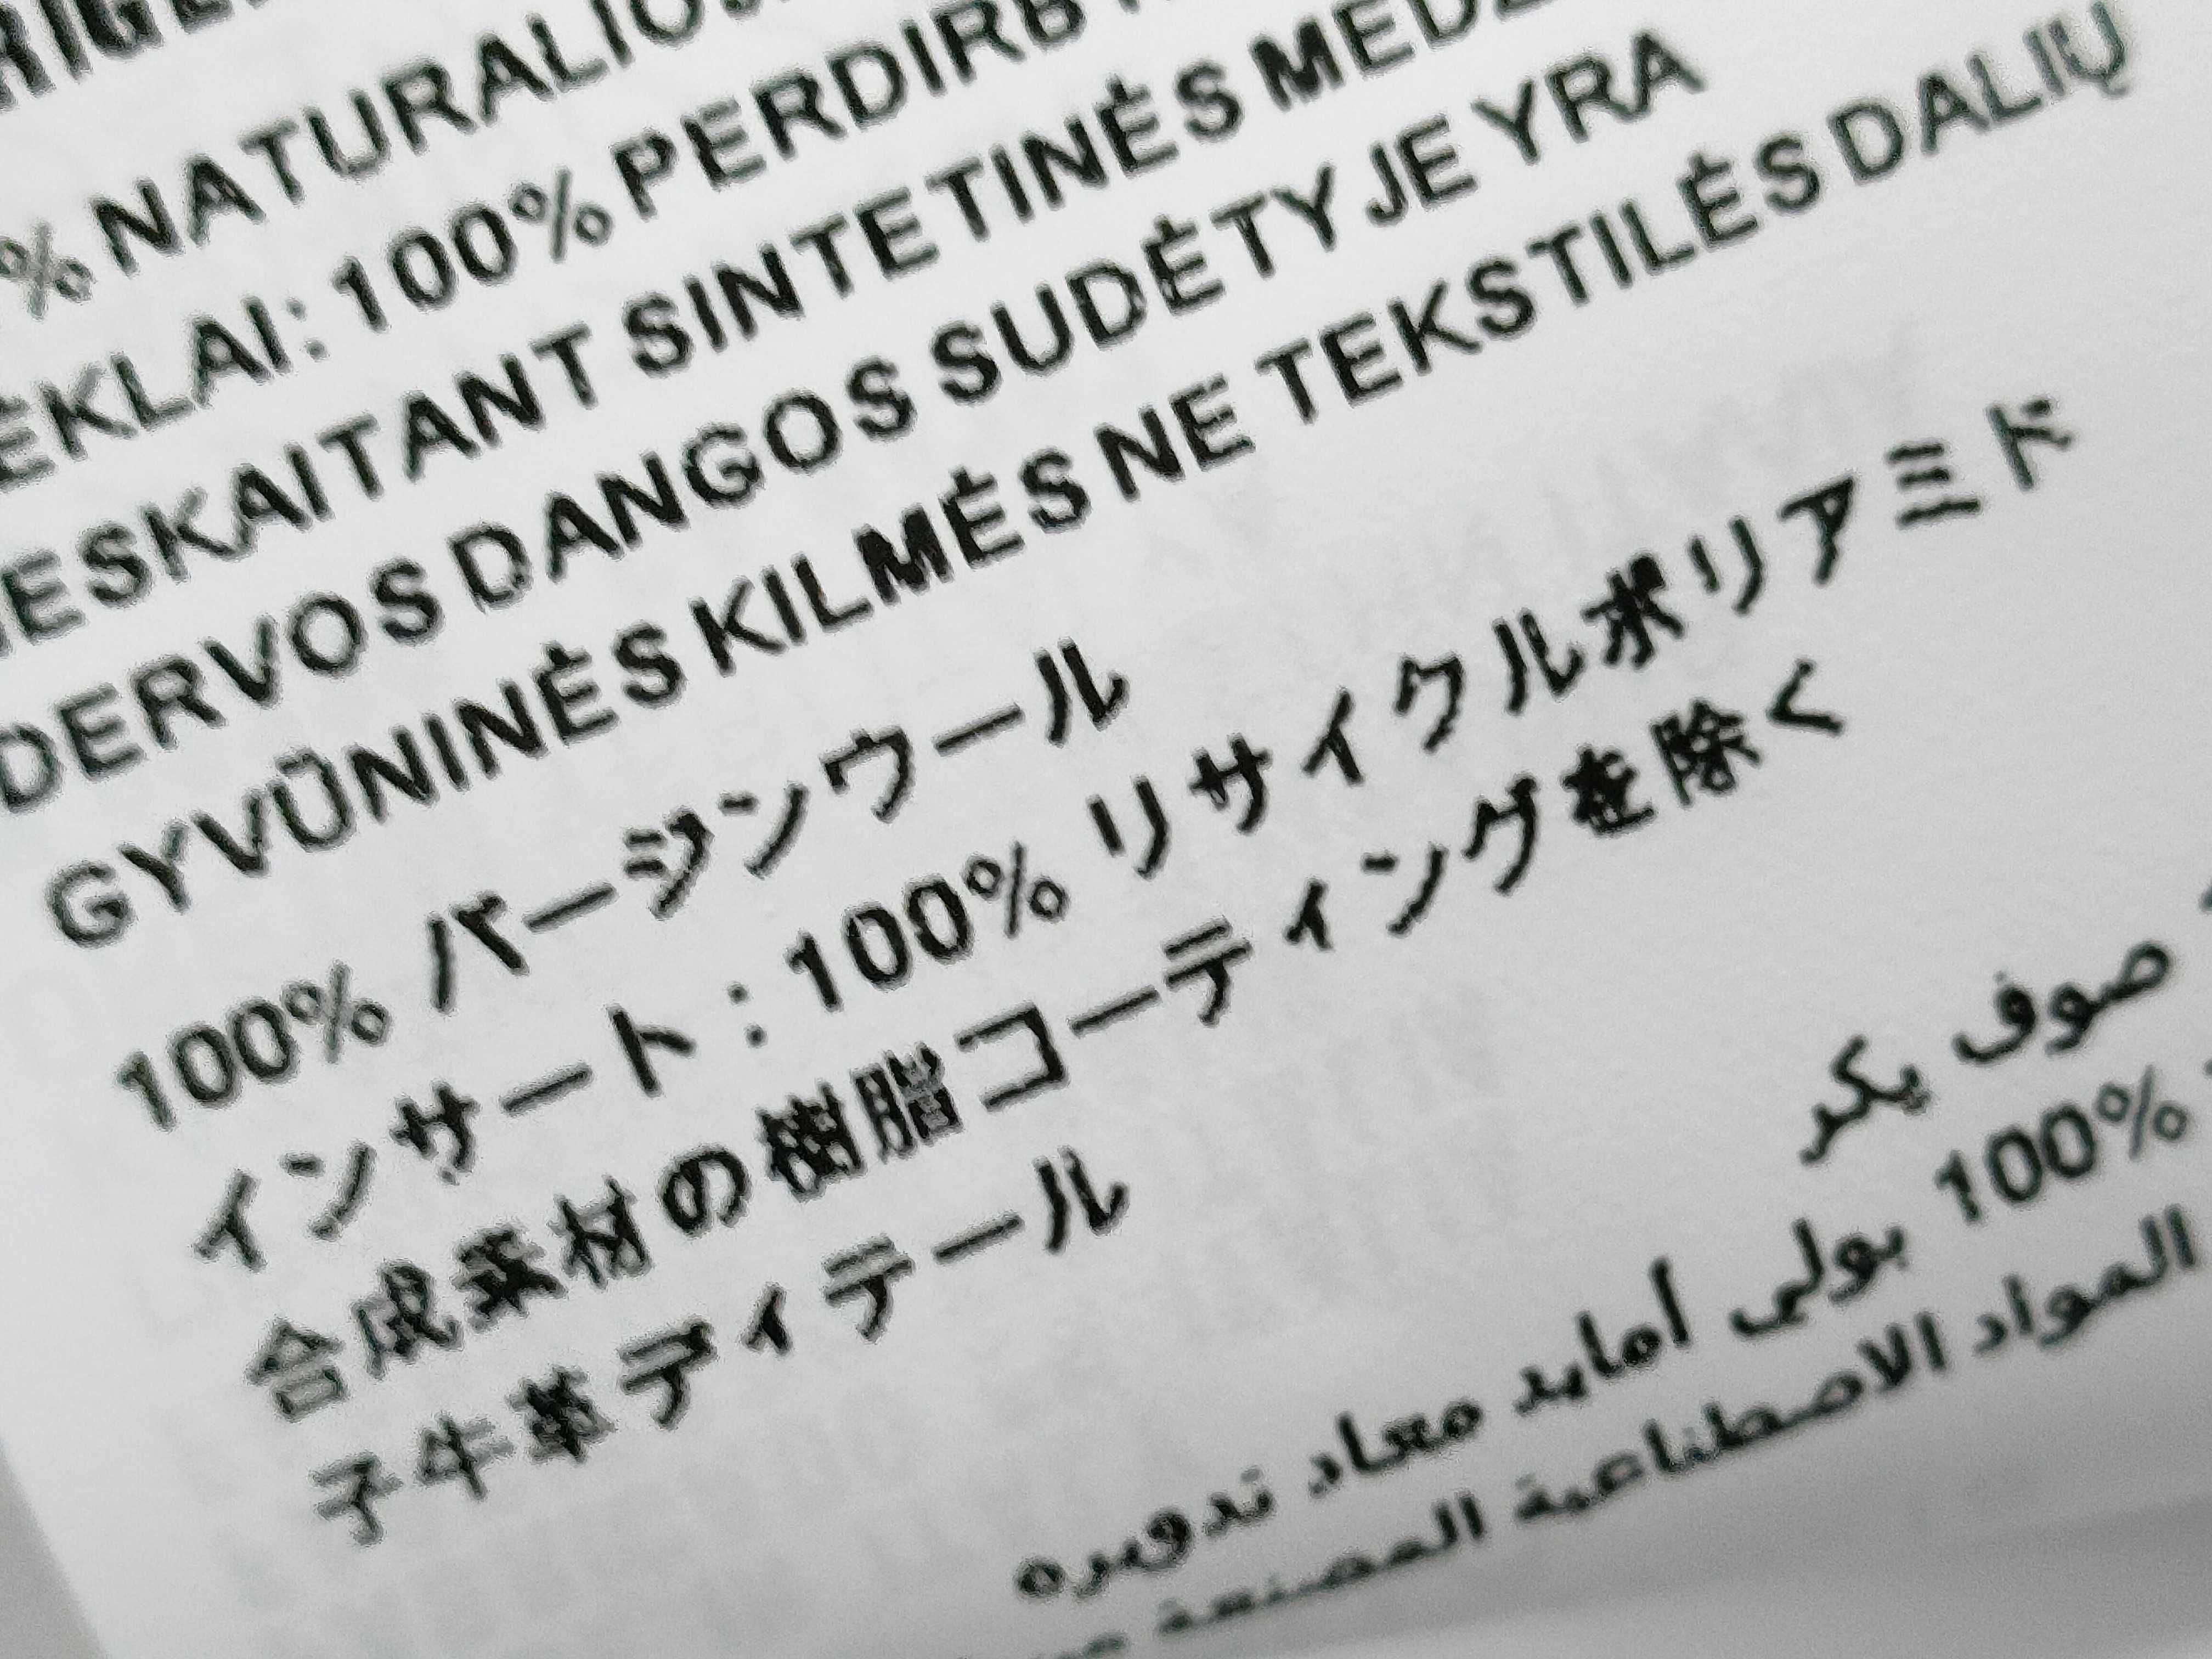 % NATURALIOJI
ĖKLAI: 100% PERDIRB
NESKAITANT SINTETINĖS MEDŽ
DERVOS DANGOS SUDĖTYJE YRA
GYVŪNINĖS KILMĖS NE TEKSTILĖS DALIŲ
100% バージンウール
インサート：100% リサイクルポリアミド
合成素材の樹脂コーティングを除く
子牛革ディテール
صوف بكر
100% بولي أمايد معاد تدويره
المواد الاصطناعية المصنعة